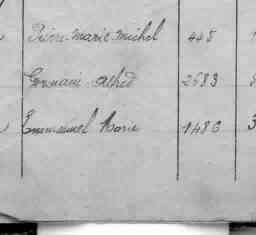 Pierre-Marie-Michel 448
Germain Alfred 2683
Emmanuel Marie 1486 3